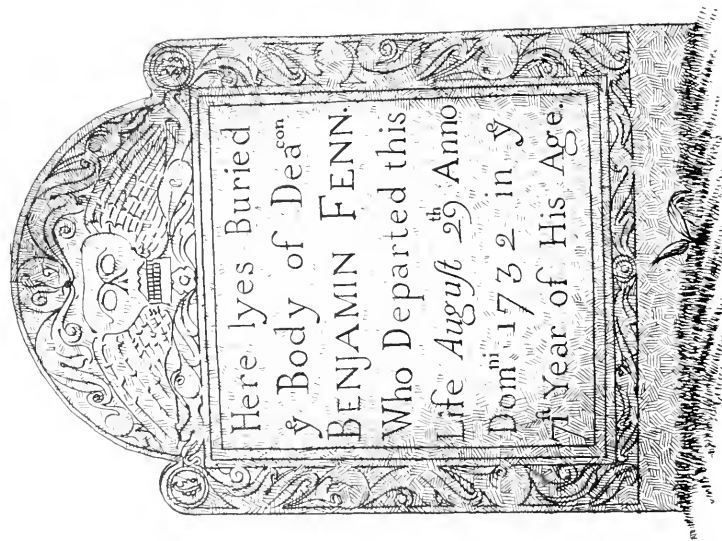 Here lyes Buried
yͤ Body of Deaᶜᵒⁿ
BENJAMIN FENN.
Who Departed this
Life Auguſt 29ᵗʰ Anno
Domⁿⁱ 1732 in yͤ
71ˢᵗ Year of His Age.